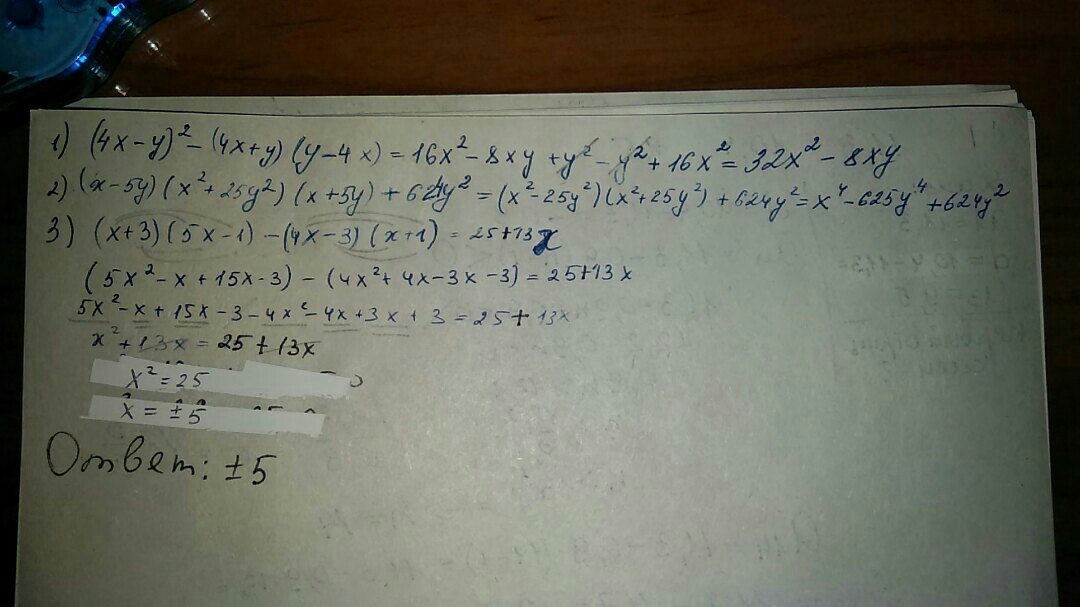 1) (4x-y)² - (4x+y)(y-4x) = 16x² - 8xy + y² - y² + 16x² = 32x² - 8xy
2) (x-5y)(x²+25y²)(x+5y) + 624y² = (x²-25y²)(x²+25y²) + 624y² = x⁴ - 625y⁴ + 624y²
3) (x+3)(5x-1) - (4x-3)(x+1) = 25+13x
(5x² - x + 15x - 3) - (4x² + 4x - 3x - 3) = 25+13x
5x² - x + 15x - 3 - 4x² - 4x + 3x + 3 = 25 + 13x
x² + 13x = 25 + 13x
x² = 25
x = ±5
Ответ: ±5